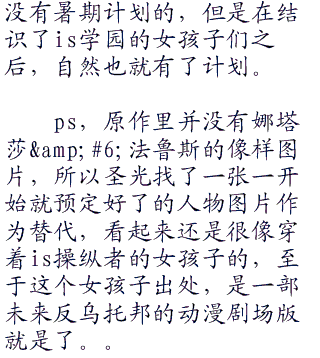 没有暑期计划的，但是在结
识了is学园的女孩子们之
后，自然也就有了计划。
ps，原作里并没有娜塔
莎&amp;#6;法鲁斯的像样图
片，所以圣光找了一张一开
始就预定好了的人物图片作
为替代，看起来还是很像穿
着is操纵者的女孩子的，至
于这个女孩子出处，是一部
未来反乌托邦的动漫剧场版
就是了。。